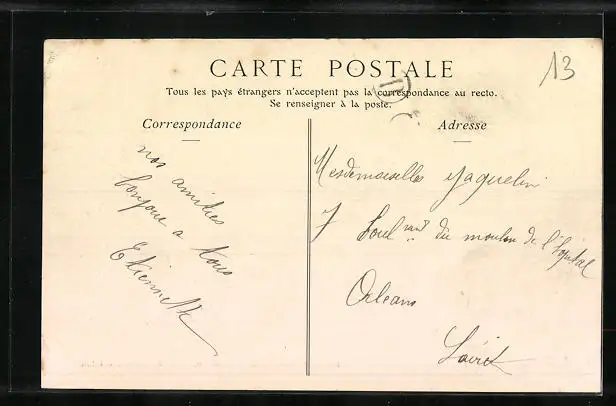 CARTE POSTALE
Tous les pays étrangers n'acceptent pas la correspondance au recto.
Se renseigner à la poste.
13
D
Correspondance
Adresse
nos amitiés
bonjour a tous
Etiennette
Mesdemoiselles Jaquelin
7 Boulvard du moulin de l'hôpital
Orléans
Loiret